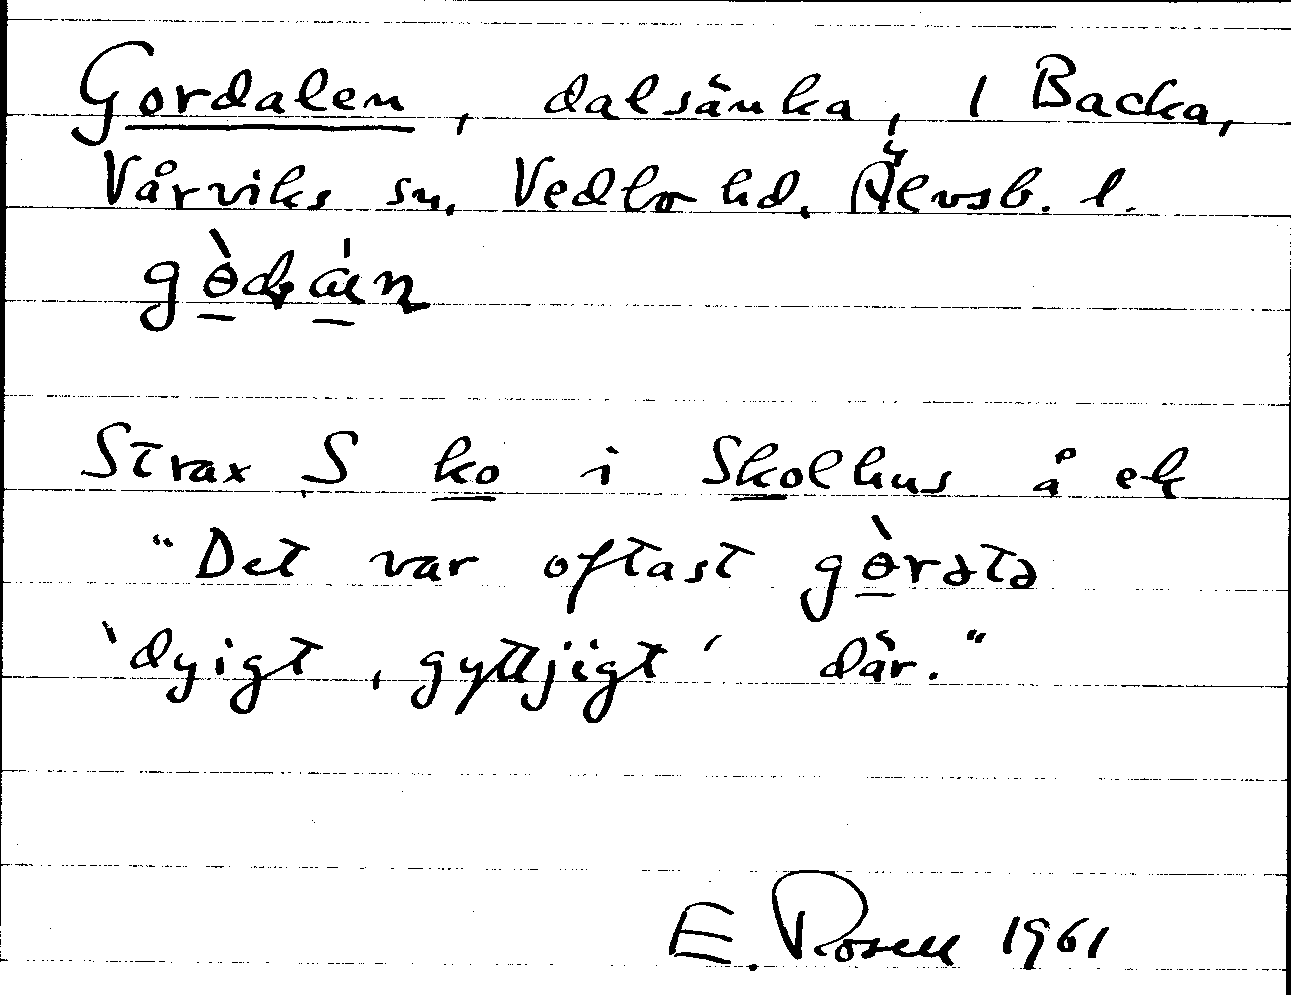 Gordalen, dalsänka, 1 Backa,
Vårviks sn. Vedbo hd. Älvsb. l.
Strax S ko i Skolhus å ek
"Det var oftast gòrətə
'dyigt, gyttjigt' där."
E. Rosell 1961